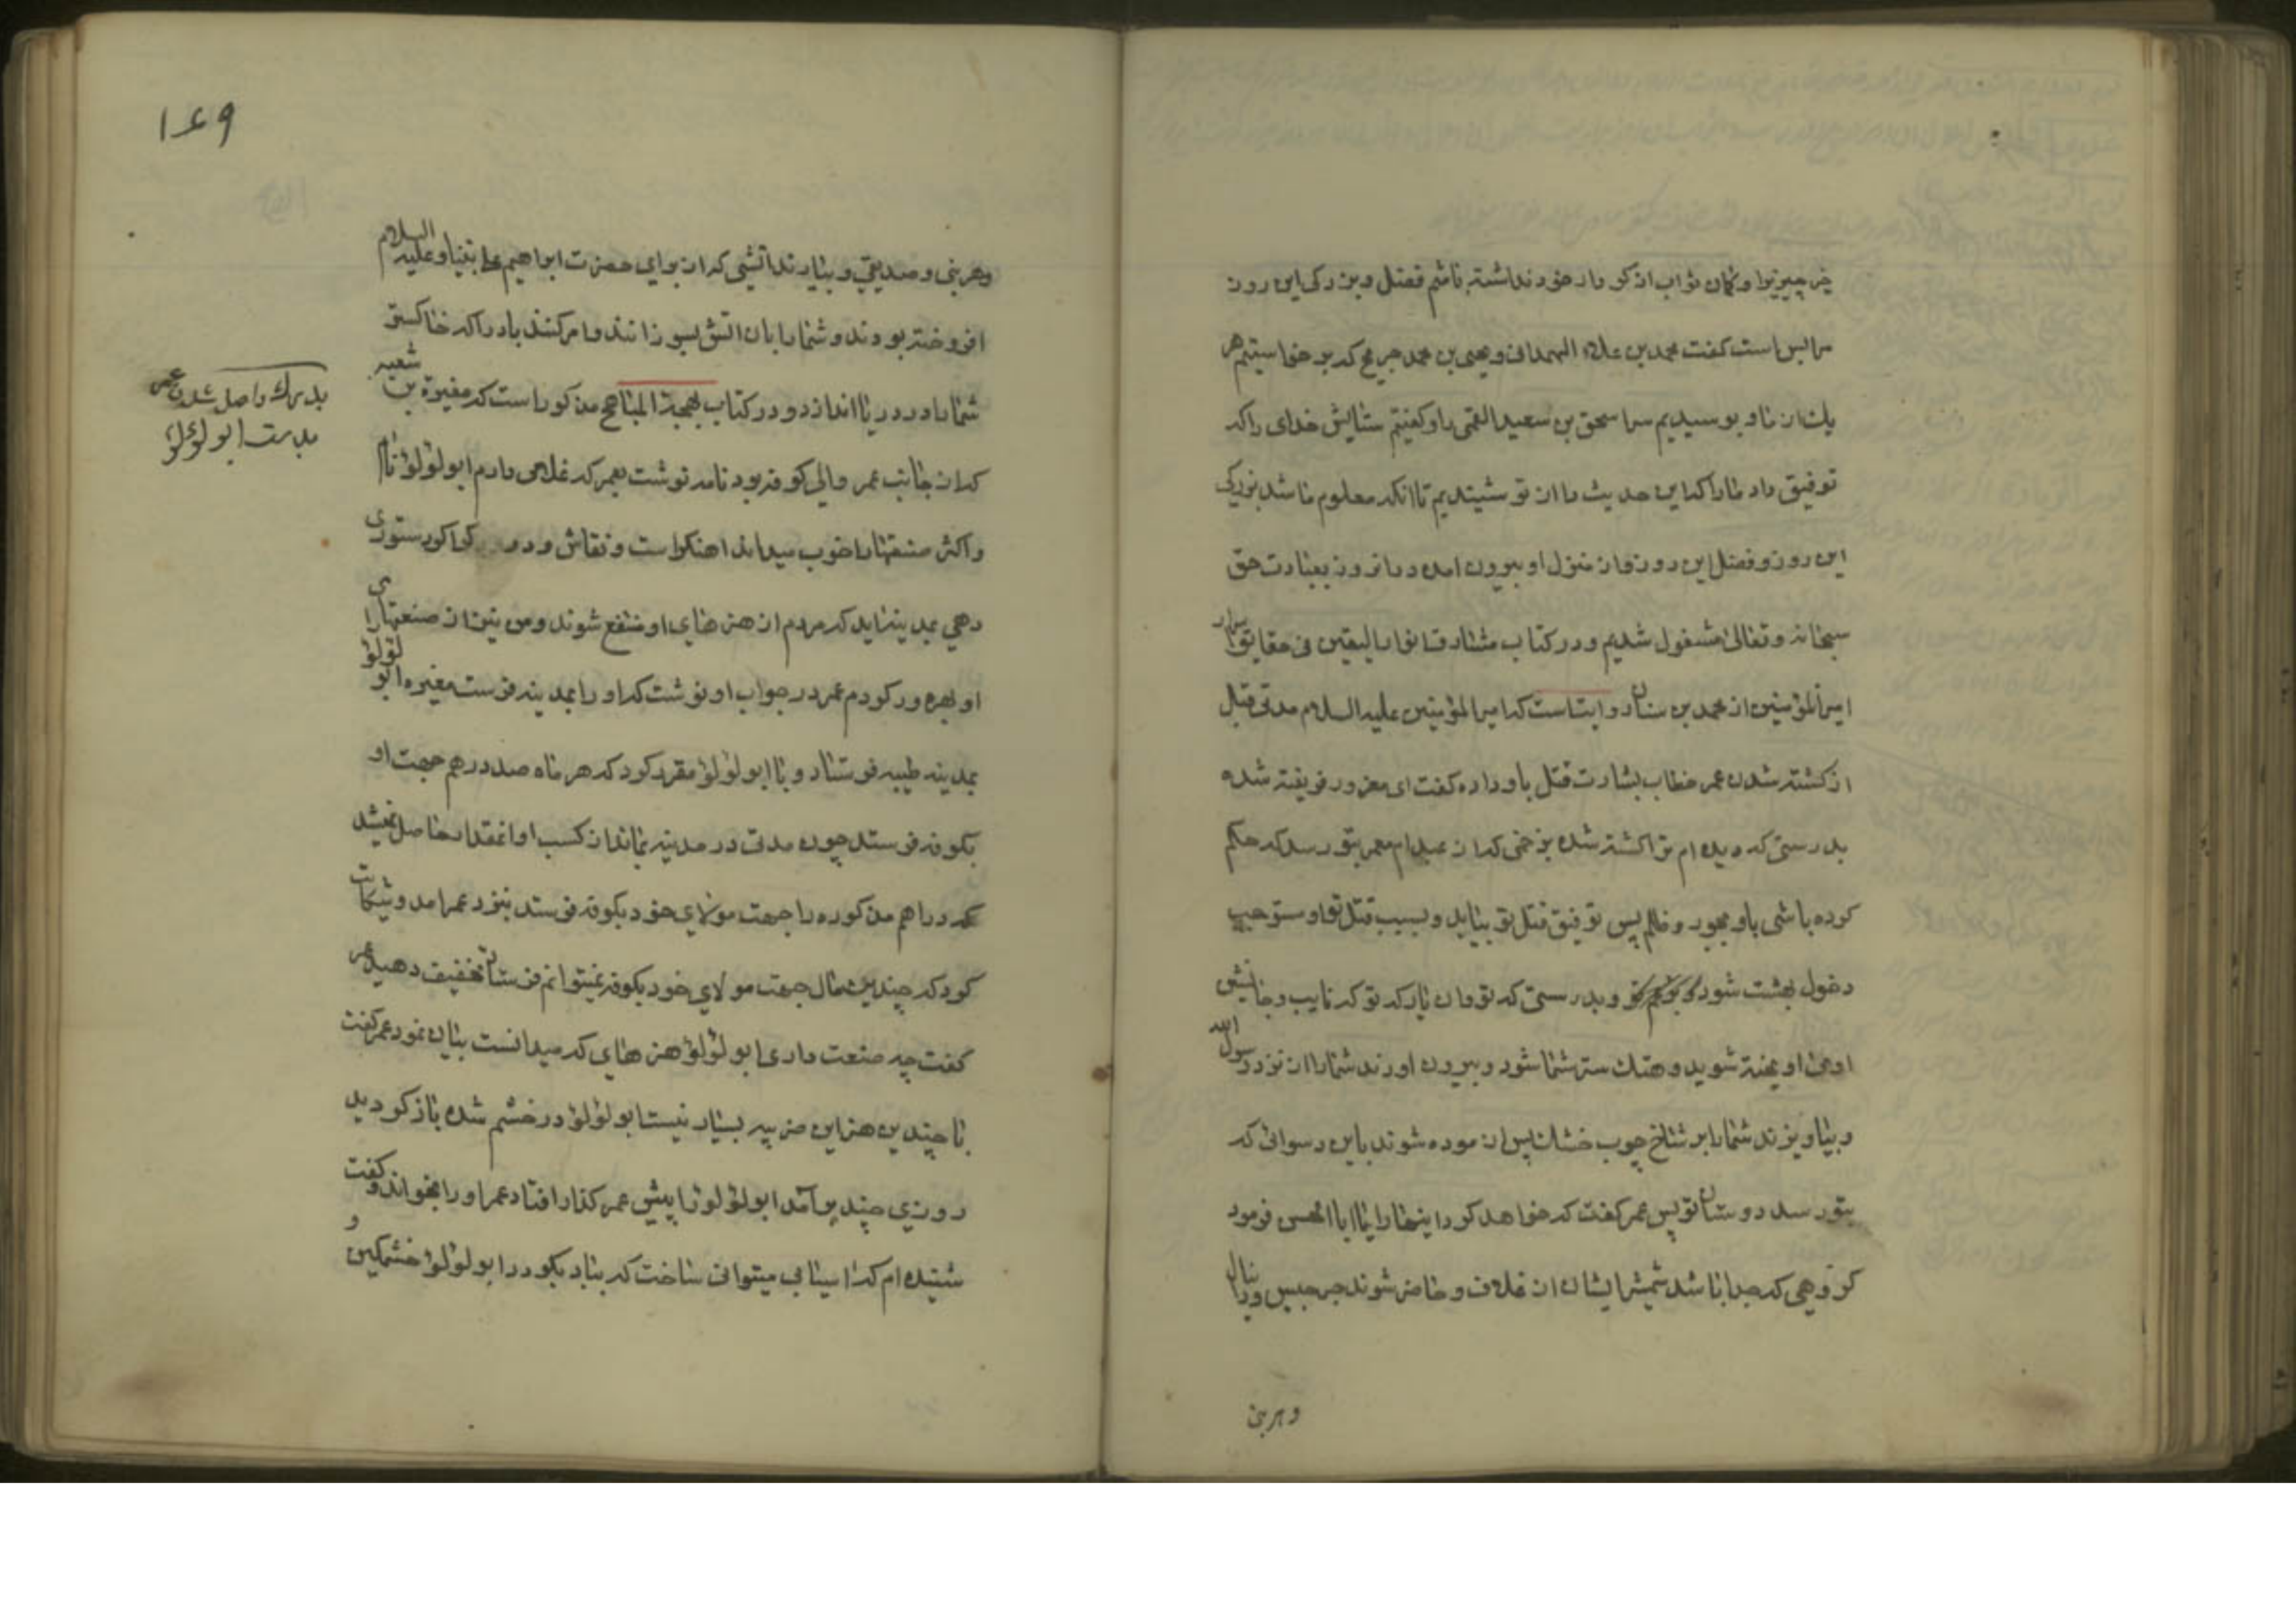 خیر چیزیرا و کمان ثواب از کردار خود نداشته باشم فضل و بزرکی این روز
مرا بس است کفت محمد بن علاء الهمدانی و یحیی بن محمد جریح که برخواستیم هر
یک از ما و بوسیدیم سر اسحق بن سعید القمی را و کفتیم ستایش خدای را که
توفیق داد ما را که این حدیث را از تو شنیدیم تا آنکه معلوم ما شد بزرکی
این روز و فضل این روز و از منزل او بیرون امده و در آنروز بعبادت حق
سبحانه و تعالی مشغول شدیم و در کتاب مشارق انوار الیقین فی حقایق اسرار
امیرالمؤمنین از محمد بن سنان روایتست که امیرالمؤمنین علیه السلام مدتی قبل
از کشته شدن عمر خطاب بشارت قتل باو داده کفت ای مغرور فریفته شده
بدرستی که دیده ام ترا کشته شده بزخمی که از عبد ام معمر بتو رسد که حکم
کرده باشی باو بجور و ظلم پس توفیق قتل تو بیابد و بسبب قتل تو او مستوجب
دخول بهشت شود و بدرستی که تو و ان یار که تو که نایب و جانشین
اوئی اویخته شوید و هتک ستر شما شود و بیرون اورند شما را از نزد رسول الله
و بیاویزند شما را بر شاخ چوب خشک پس ازموده شوند باین رسوائی که
بتو رسد دوستان تو پس عمر کفت که خواهد کرد اینها را یا ابا الحسن فرمود
کروهی که جدا باشد شمشیر ایشان از غلاف و حاضر شوند جرجیس و دانیال
و هر بنی
۱۴۹
و هر بنی و صدیقی و بیارند اتشی که از برای حضرت ابراهیم علی نبینا و علیه السلام
افروخته بودند و شما را بان اتش بسوزانند و امر کنند باد را که خاکستر
شما را در دریا اندازد و در کتاب بهجة المباهج مذکور است که مغیرة بن شعبه
که از جانب عمر والی کوفه بود نامه نوشت بعمر که غلامی دارم ابو لؤلؤ نام
و اکثر صنعتها را خوب میداند اهنکر است و نقاش و درودکر اکر دستوری
دهی بمدینه اید که مردم از هنرهای او منتفع شوند و من نیز از صنعتهای
او بهره ور کردم عمر در جواب او نوشت که او را بمدینه فرست مغیره ابو لؤلؤ را
بمدینه طیبه فرستاد و با ابو لؤلؤ مقرر کرد که هر ماه صد درهم جهت او
بکوفه فرستد چون مدتی در مدینه بماند از کسب او انمقدار حاصل نمیشد
که دراهم مذکوره را جهت مولای خود بکوفه فرستد بنزد عمر امد و شکایت
کرد که چندین مال جهت مولای خود بکوفه نمیتوانم فرستاد تخفیف دهید عمر
کفت چه صنعت داری ابو لؤلؤ هنرهای که میدانست بیان نمود عمر کفت
با چندین هنر این ضریبه بسیار نیست ابو لؤلؤ در خشم شده باز کردید
روزی چند بر امد ابو لؤلؤ را پیش عمر کذار افتاد عمر او را بخواند و کفت
شنیده ام که آسیابی میتوانی ساخت که بباد بکردد ابو لؤلؤ خشمکین و
بدرک واصل شدن عمر
بدست ابو لؤلؤ